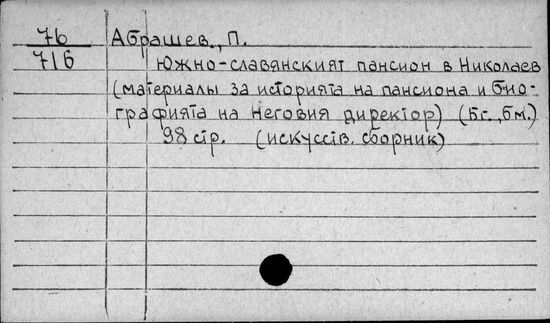 76 Абрашев., П.
716 Южно-славянският пансион в Николаев
(материалы за историята на пансиона и био-
графията на неговия директор) (Бг., бм.)
98 стр. (искуств. сборник)